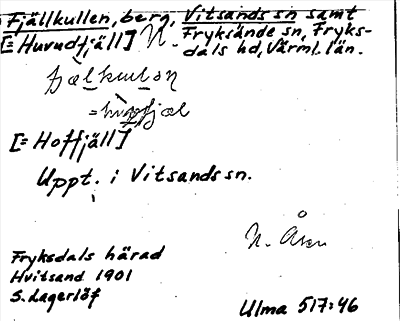 Fjällkullen, berg, Vitsands sn samt
[= Huvudfjäll] N. Fryksände sn, Fryks-
dals hd, Värml. län.
fjælkulon
= hupfjæl
[= Hoffjäll]
Uppt. i Vitsands sn.
N. Åsen
Fryksdals härad
Hvitsand 1901
S. Lagerlöf
Ulma 517:46